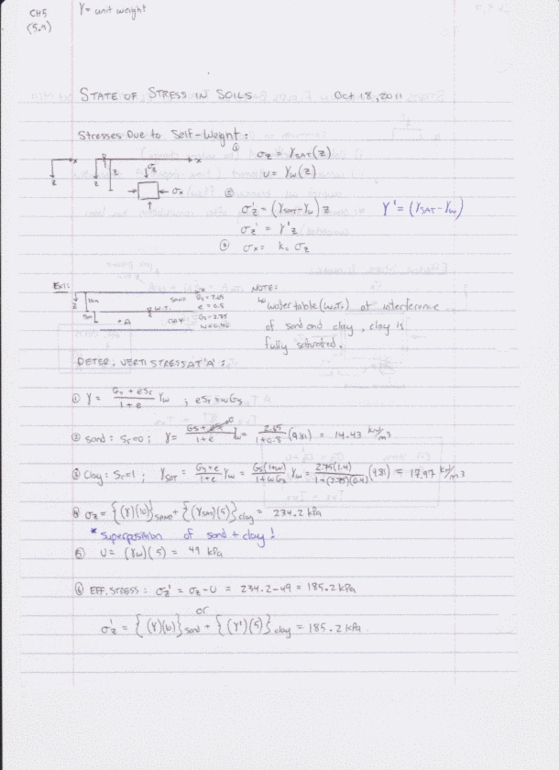 CH5
(5.9)
γ = unit weight
STATE OF STRESS IN SOILS Oct 18, 2011
Stresses Due to Self-Weight:
① σz = γSAT(z)
u = γw(z)
②
σz' = (γSAT-γw) z γ' = (γSAT-γw)
σz' = γ'z
③ σx = k₀ σz
x x
z z z
σz
σx
Ex1:
z 10m SAND Gs = 2.65
W.T. e = 0.8
5m • A CLAY Gs = 2.75
w = 0.40
NOTE:
↳ water table (w.T.) at interference
of sand and clay, clay is
fully saturated.
DETER. VERTI STRESS AT 'A':
① γ = Gs + eSr / 1+e γw ; eSr = wGs
② sand: Sr=0; γ = Gs + eSr⁰ / 1+e γw = 2.65 / 1+0.8 (9.81) = 14.43 kN/m3
③ Clay: Sr=1; γSAT = Gs+e / 1+e γw = Gs(1+w) / 1+wGs γw = 2.75(1.4) / 1+(2.75)(0.4) (9.81) = 17.97 kN/m3
④ σz = {(γ)(10)}sand + {(γSAT)(5)}clay = 234.2 kPa
* superposition of sand + clay!
⑤ U = (γw)(5) = 49 kPa
⑥ EFF. STRESS: σz' = σz - U = 234.2-49 = 185.2 kPa
or
σz' = {(γ)(10)}sand + {(γ')(5)}clay = 185.2 kPa